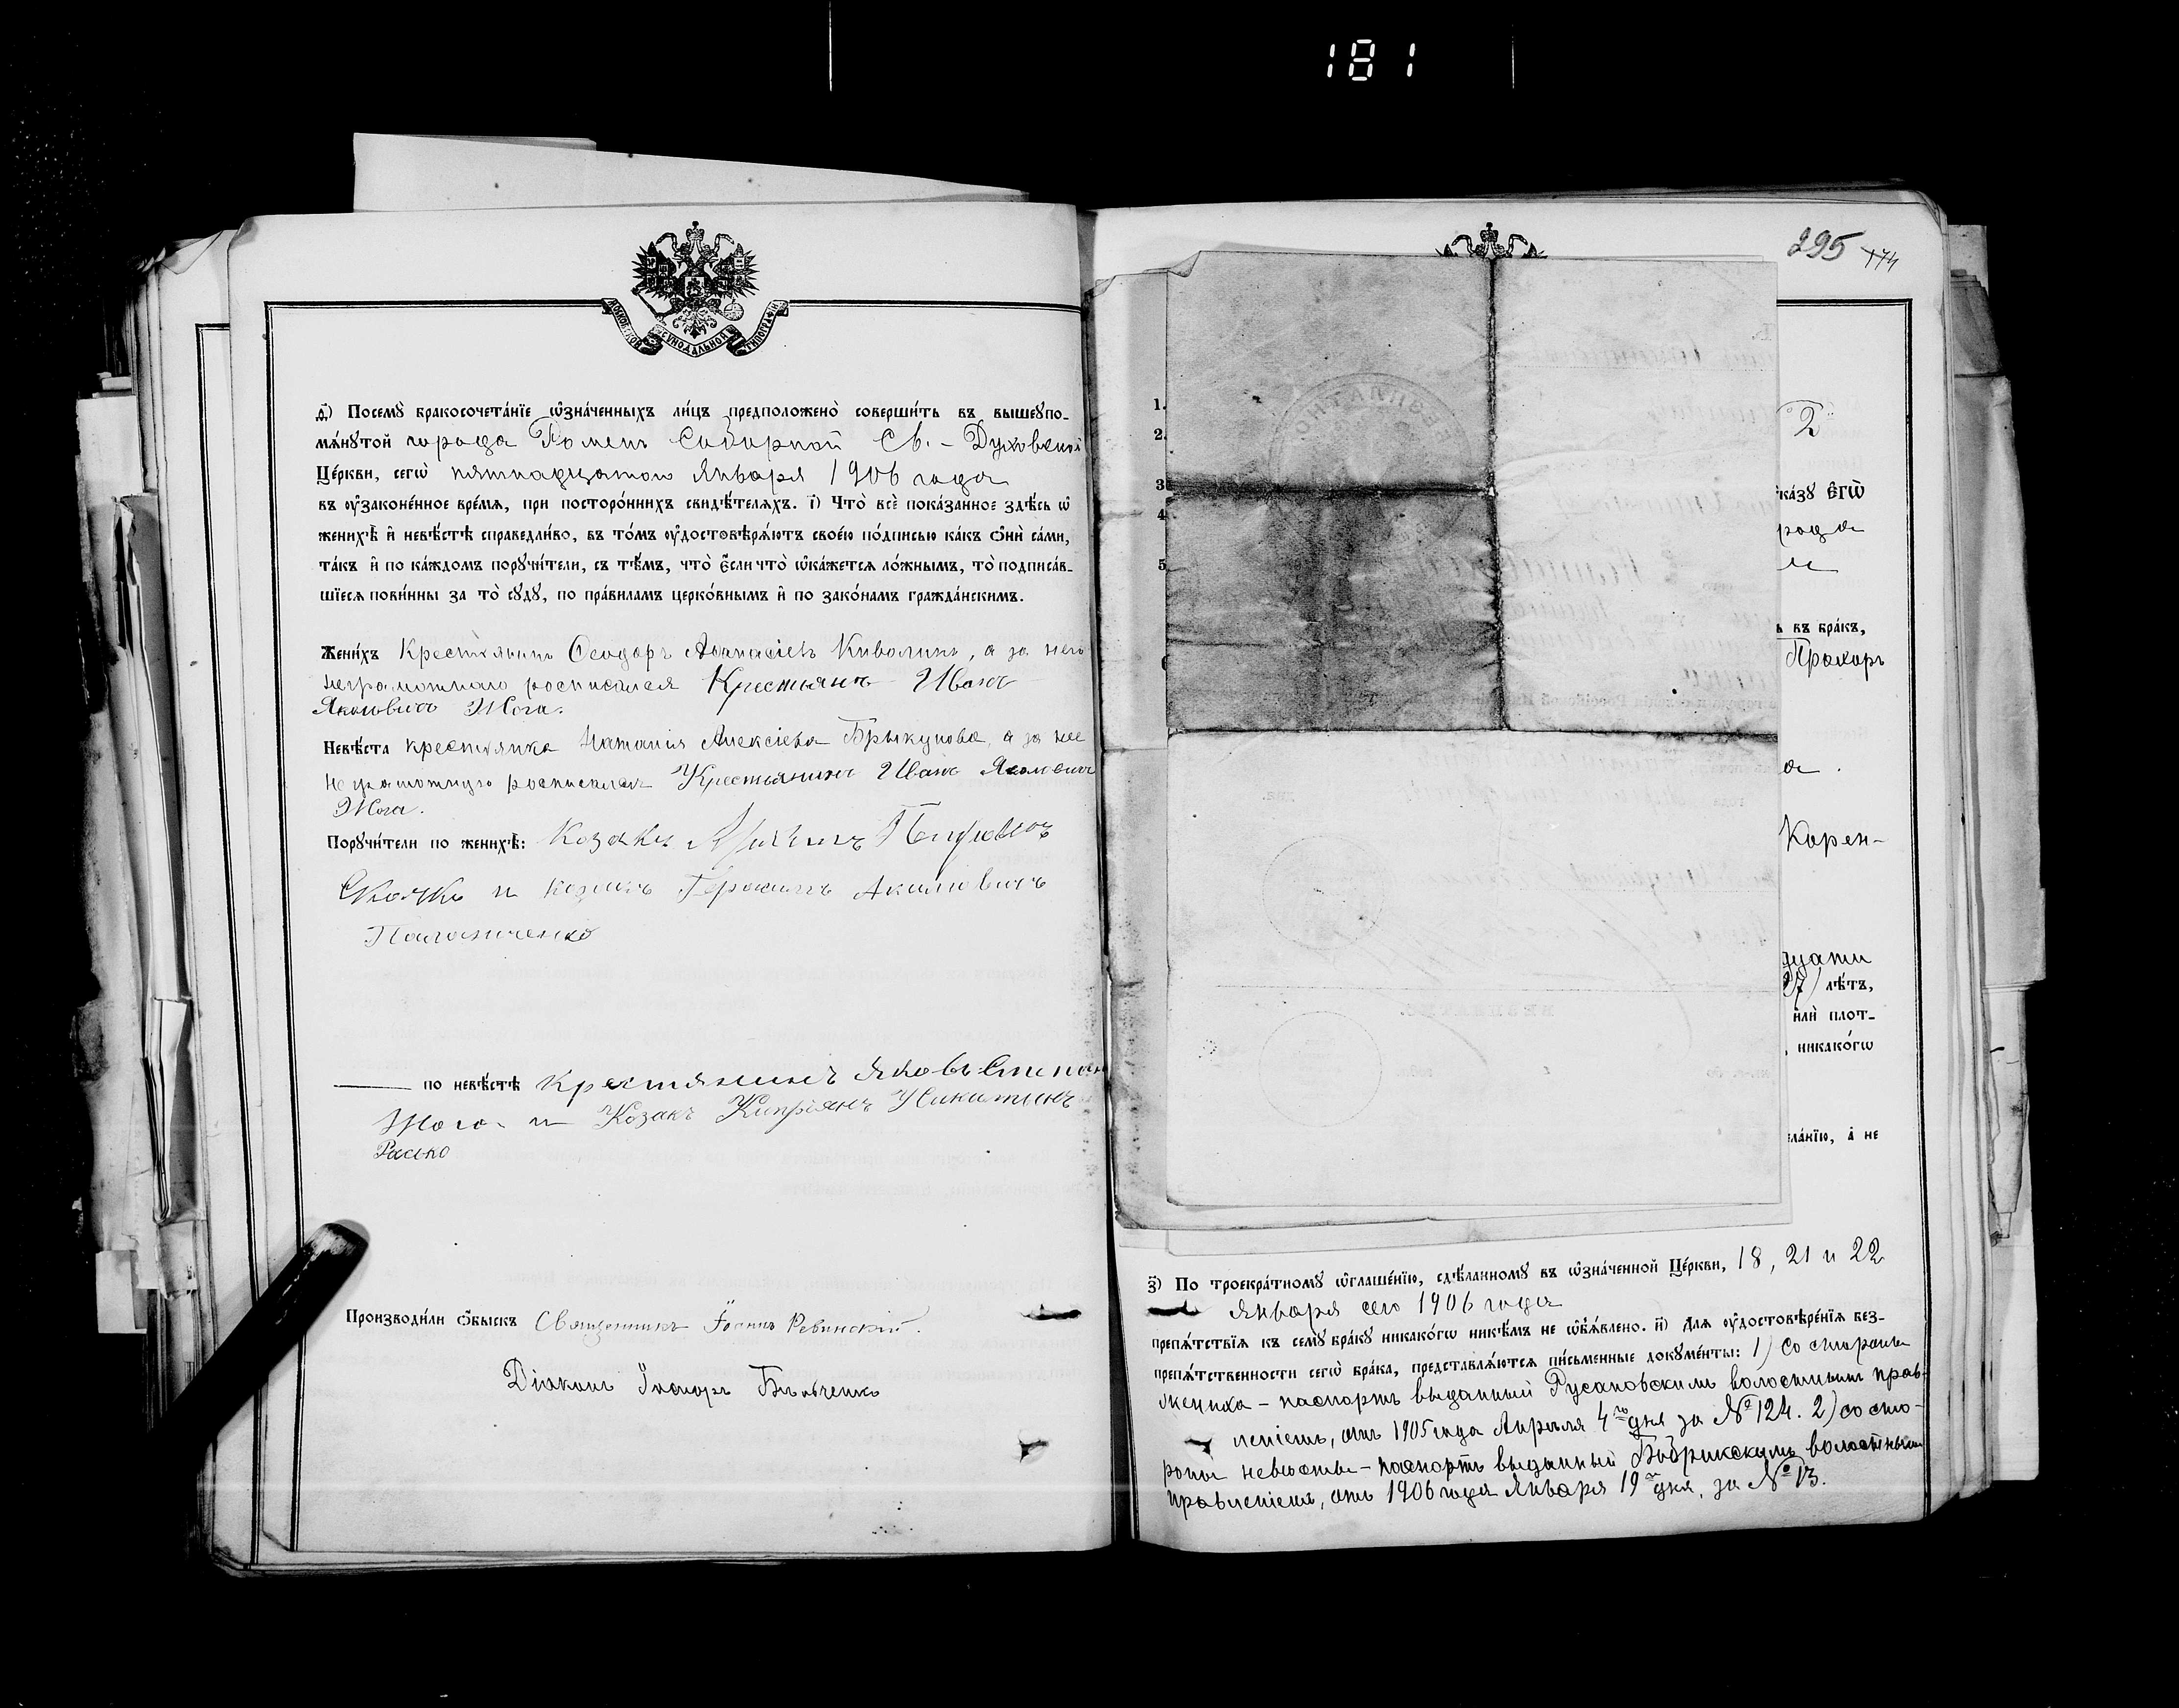 181
МОСКОВСКОЙ СѴНОДАЛЬНОЙ ТИПОГРАФІИ
д҃) Посемꙋ̀ бракосочета́нїе ѡ҆зна́ченныхъ ли́цъ предположено̀ соверши́ть въ вышеꙋпо-
мѧ́нꙋтой города Ромен Соборной Св. - Духовской
Це́ркви, сегѡ̀ пятнадцатого Января 1906 года
въ ᲂу҆законе́нное вре́мѧ, при посторо́ннихъ свидѣ́телѧхъ. і҃) Что̀ всѐ пока́занное здѣ́сь ѡ҆
женихѣ̀ и҆ невѣ́стѣ справедли́во, въ то́мъ ᲂу҆достовѣрѧ́ютъ свое́ю по́дписью ка́къ ѻ҆нѝ са́ми,
та́къ и҆ по ка́ждомъ порꙋчи́тели, съ тѣ́мъ, что̀ є҆́сли что̀ ѡ҆ка́жетсѧ ло́жнымъ, то̀ подписа́в-
шїесѧ пови́нны за то̀ сꙋдꙋ̀, по пра́виламъ церко́внымъ и҆ по зако́намъ гражда́нскимъ.
Жени́хъ Крестьянинъ Ѳеодоръ Аѳанасіевъ Киволинъ, а за него
неграмотного росписался Крестьянъ Иванъ
Яковлевичъ Жога.
Невѣ́ста крестьянка Наталія Алексіева Брыкунова, а за нее
неграмотную росписался Крестьянинъ Иванъ Яковлевичъ
Жога.
Порꙋчи́тели по женихѣ̀: Козакъ
и козакъ Герасимъ Акимовичъ
по невѣ́стѣ крестянинъ Яковъ Степан
Жога и Козакъ Кипріянъ Никитинъ
Расько
Производи́ли ѻ҆́быскъ Священникъ Іоаннъ Ревинскій.
Діаконъ Ѳеодоръ
295 174
1.
2.
2
3
ᲂу҆ка́зꙋ є҆гѡ̀
4
рода
5
ь въ бра́къ,
Прохоръ
Корен-
дцати
27) лѣ́тъ,
и҆лѝ плот-
, никако́гѡ
ела́нїю, а҆ не
з҃) По троекра́тномꙋ ѡ҆глаше́нїю, сдѣ́ланномꙋ въ ѡ҆зна́ченной Це́ркви, 18, 21 и 22
Января сего 1906 года
препѧ́тствїѧ къ семꙋ̀ бра́кꙋ никако́гѡ никѣ́мъ не ѡ҆б̾ѧ́влено. и҃) Длѧ ᲂу҆достовѣре́нїѧ без-
препѧ́тственности сегѡ̀ бра́ка, представлѧ́ютсѧ пи́сьменные докꙋме́нты: 1) Со стороны
жениха - паспортъ выданный Русановскимъ волостнымъ прав-
леніемъ, отъ 1905 года Апрѣля 4го дня за № 124. 2) со сто-
роны невѣсты - паспортъ выданный Бобрикскимъ волостнымъ
правленіемъ, отъ 1906 года Января 19го дня, за № 13.